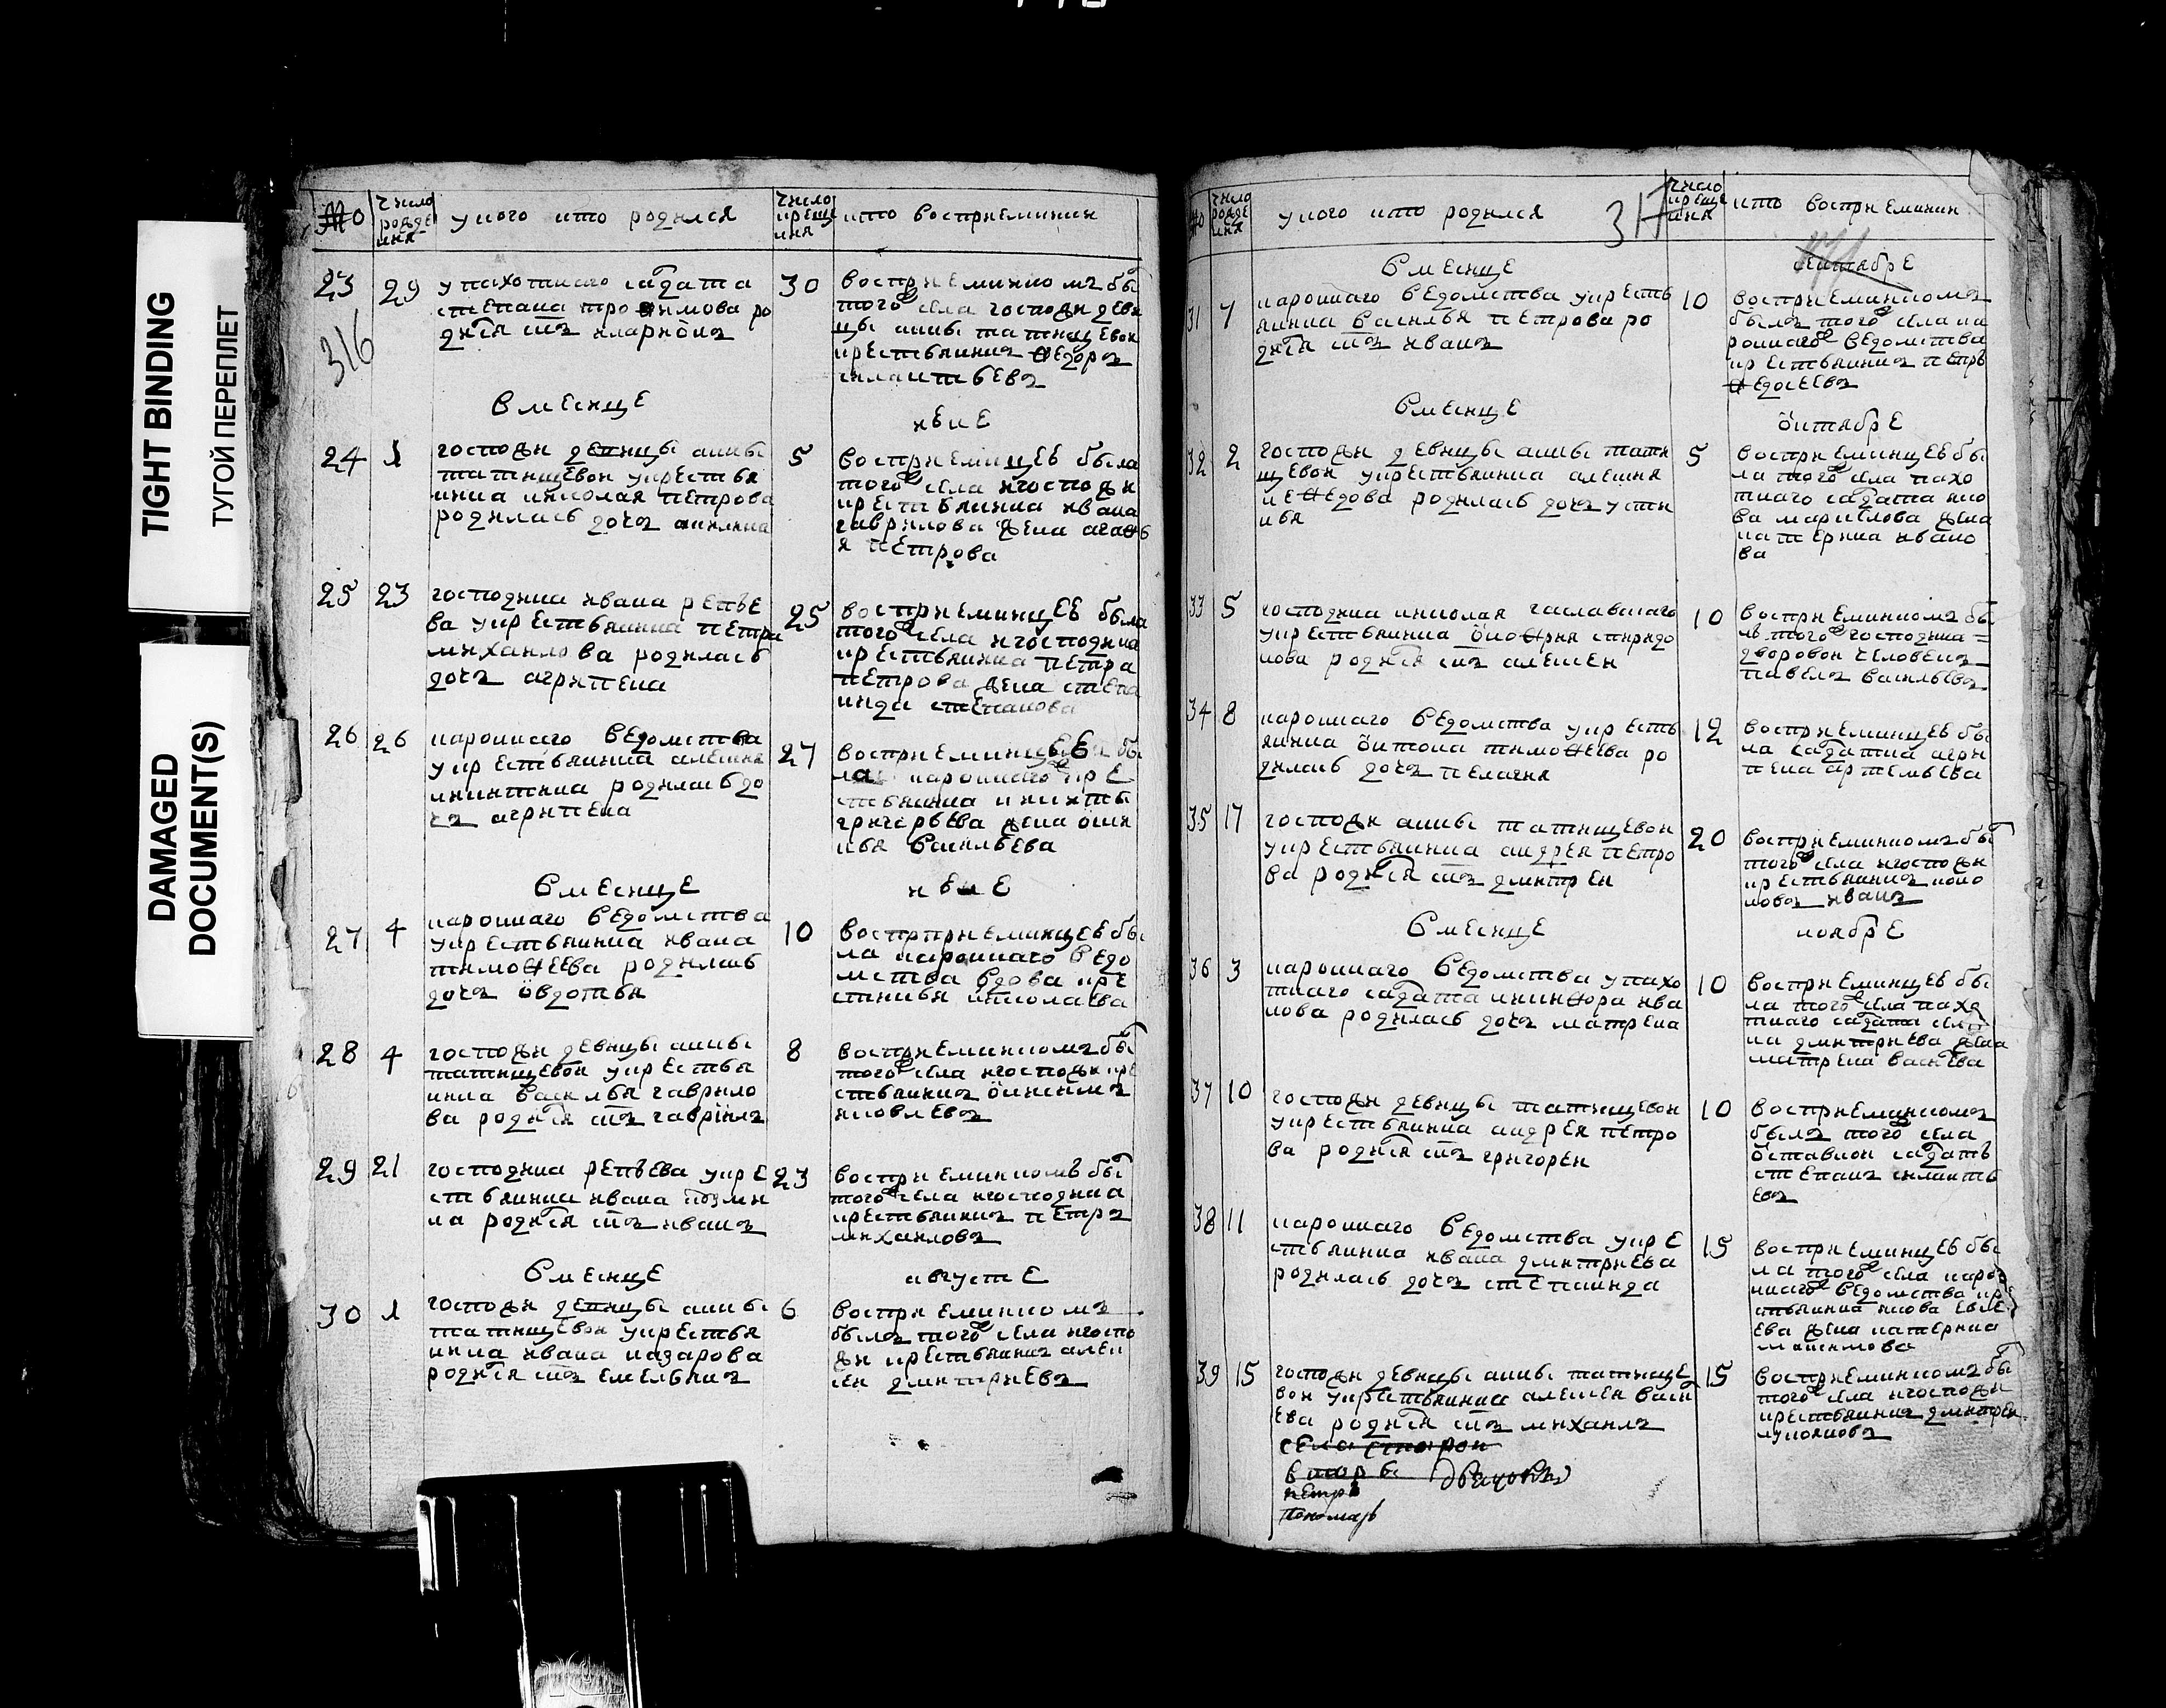 TIGHT BINDING
ТУГОЙ ПЕРЕПЛЕТ
DAMAGED
DOCUMENT(S)
№
число рожде ния
у кого кто родился
число креще ния
кто восприемники
23
29
у пахотнаго салдата
степана трофимова ро
дился снъ иларионъ
30
восприемникомъ бы
того села господжи деви
цы анны татищевой
крестьянинъ федоръ
силантьевъ
316
в месице
июне
24
1
господжи девицы анны
татищевой у крестья
нина николая петрова
родилась дочь
5
восприемницей была
того села и господжи
крестьянина ивана
гаврилова жена агафь
я петрова
25
23
господина ивана репье
ва у крестьянина петра
михаилова родилась
дочь агрипена
25
восприемницей была
того села и господина
крестьянина петра
петрова жена степа
нида степанова
26
26
кароннаго ведомства
у крестьянина алексия
никитина родилась до
чь агрипена
27
восприемницей бы
ла кароннаго кре
стьянина никиты
григорьева жена
васильева
в месице
июле
27
4
кароннаго ведомства
у крестьянина ивана
тимофеева родилась
дочь овдотья
10
воспрприемницей бы
ла кароннаго ведо
мства вдова
николаева
28
4
господжи девицы анны
татищевой у крестья
нина василья гаврило
ва родился снъ гаврiилъ
8
восприемникомъ бы
того села и господжи кре
стьянинъ
яковлевъ
29
21
господина репьева у кре
стьянина ивана козми
на родился снъ иванъ
23
восприемникомъ бы
того села и господина
крестьянинъ петръ
михаиловъ
в месице
августе
30
1
господжи девицы анны
татищевой у крестья
нина ивана назарова
родился снъ емельянъ
6
восприемникомъ
былъ того села и госпо
джи крестьянинъ алек
сей дмитриевъ
№
число рожде ния
у кого кто родился
317
число креще ния
кто восприемники
в месице
сентабре
31
7
кароннаго ведомства у кресть
янина василья петрова ро
дился снъ иванъ
10
восприемникомъ
былъ того села ка
роннаго ведомства
крестьянинъ петръ
федосеевъ
в месице
октабре
32
2
господжи девицы анны тати
щевой у крестьянина алексия
нефедова родилась дочь усти
нья
5
восприемницей бы
ла того села пахо
тнаго салдата яко
ва маркелова жена
катерина ивано
ва
33
5
господина николая
у крестьянина онофрия спиридо
нова родился снъ алексей
10
восприемникомъ бы
лъ того господина
дворовой человекъ
павелъ васильевъ
34
8
кароннаго ведомства у кресть
янина антона тимофеева ро
дилась дочь пелагия
12
восприемницей бы
ла салдатка агри
пена артемьева
35
17
господжи анны татищевой
у крестьянина андрея петро
ва родился снъ дмитрей
20
восприемникомъ бы
того села и господжи
крестьянинъ коно
новъ иванъ
в месице
ноябре
36
3
кароннаго ведомства у пахо
тнаго салдата никифора ива
нова родилась дочь матрена
10
восприемницей бы
ла того села пахо
тнаго салдата
дмитриева жена
матрена василева
37
10
господжи девицы татищевой
у крестьянина андрея петро
ва родился снъ григорей
10
восприемникомъ
былъ того села
оставной салдатъ
степанъ силанть
евъ
38
11
кароннаго ведомства у кре
стьянина ивана дмитриева
родилась дочь степанида
15
восприемницей бы
ла того села каро
ннаго ведомства кре
стьянина якова евсе
ева жена катерина
максимова
39
15
господжи девицы анны татище
вой у крестьянина алексея васил
ева родился снъ михаилъ
15
восприемникомъ бы
того села и господжи
крестьянинъ дмитрей
лукояновъ
пономарь